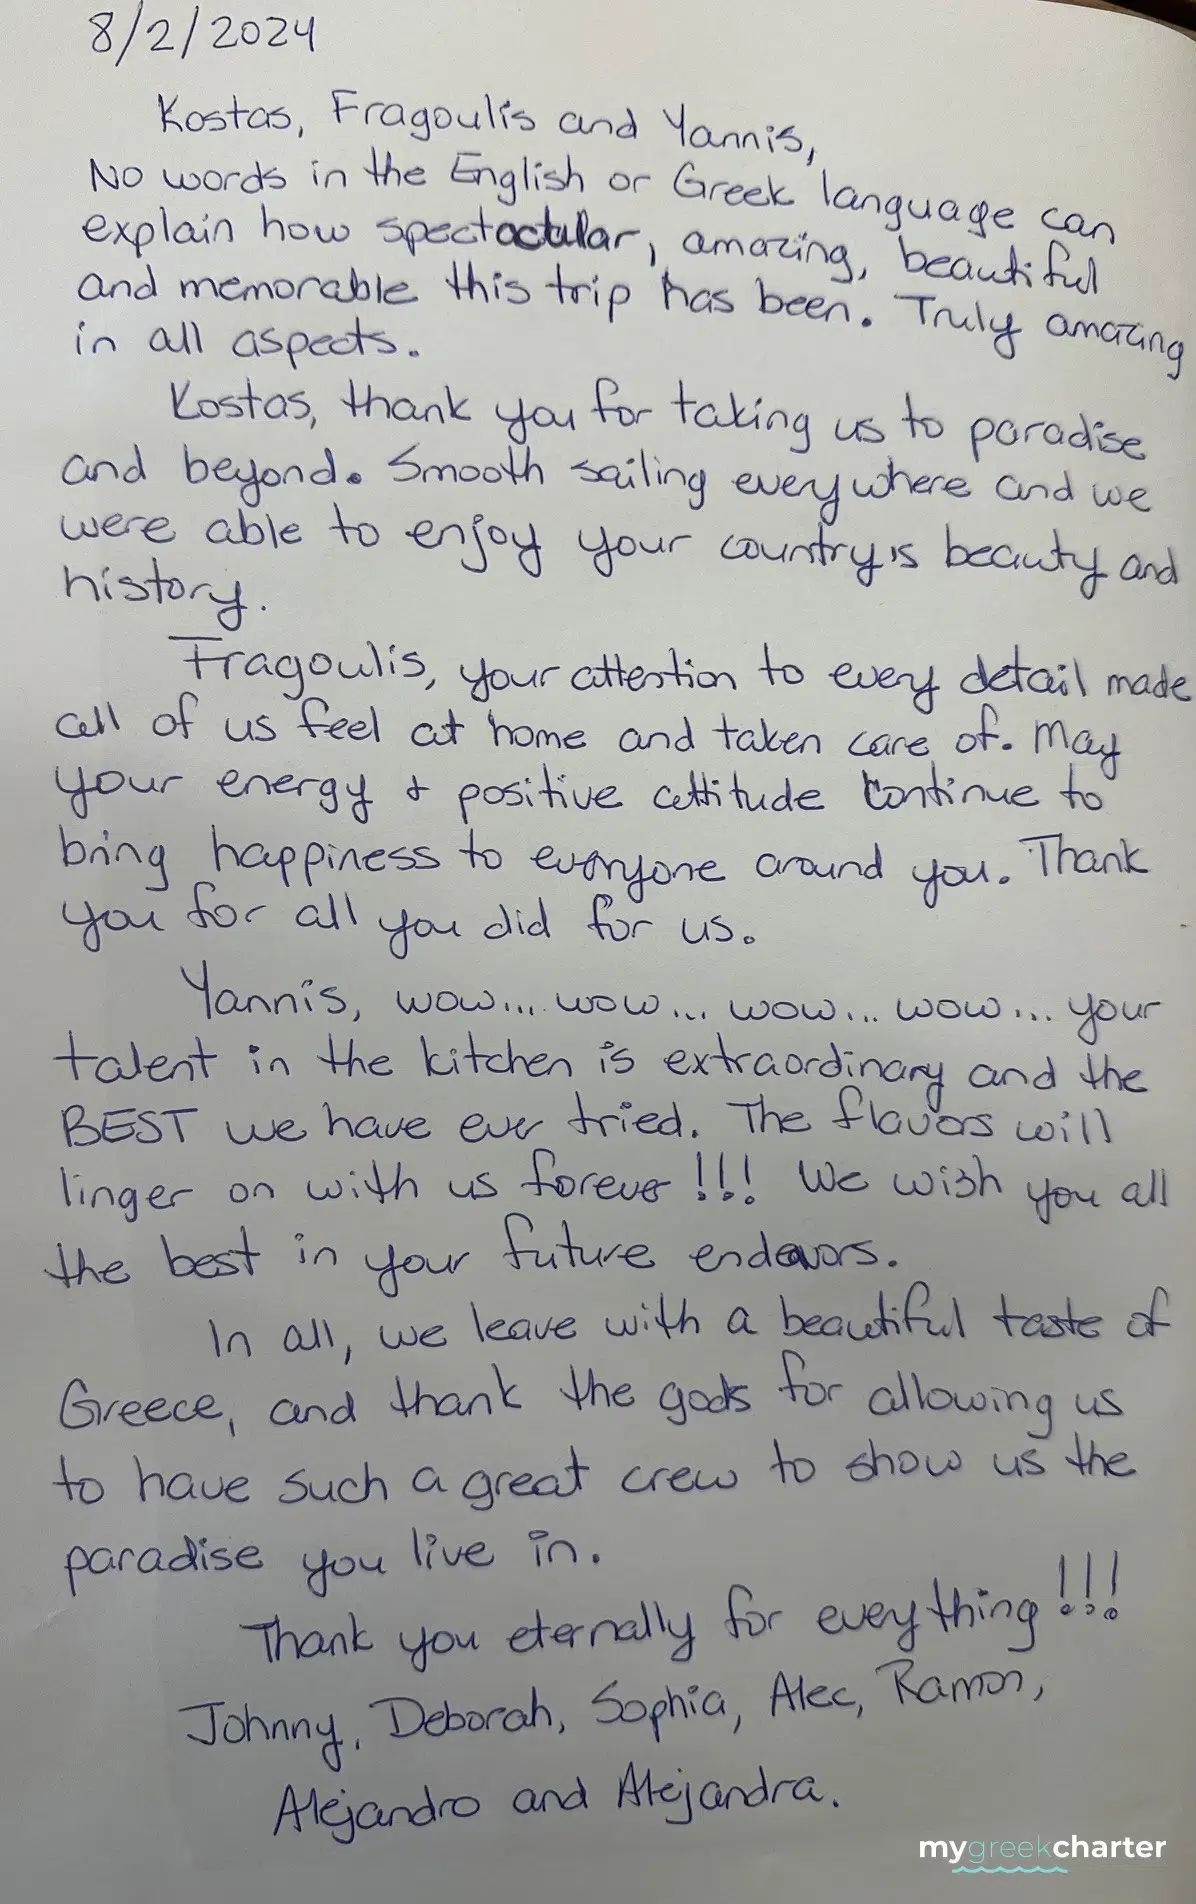 8/2/2024
Kostas, Fragoulis and Yannis,
No words in the English or Greek language can
explain how spectactular, amazing, beautiful
and memorable this trip has been. Truly amazing
in all aspects.
Kostas, thank you for taking us to paradise
and beyond. Smooth sailing everywhere and we
were able to enjoy your country's beauty and
history.
Fragoulis, your attention to every detail made
all of us feel at home and taken care of. May
your energy + positive attitude continue to
bring happiness to everyone around you. Thank
you for all you did for us.
Yannis, wow... wow... wow... wow... your
talent in the kitchen is extraordinary and the
BEST we have ever tried. The flavors will
linger on with us forever!!! We wish you all
the best in your future endeavors.
In all, we leave with a beautiful taste of
Greece, and thank the gods for allowing us
to have such a great crew to show us the
paradise you live in.
Thank you eternally for eveything!!!
Johnny, Deborah, Sophia, Alec, Ramon,
Alejandro and Alejandra.
mygreekcharter